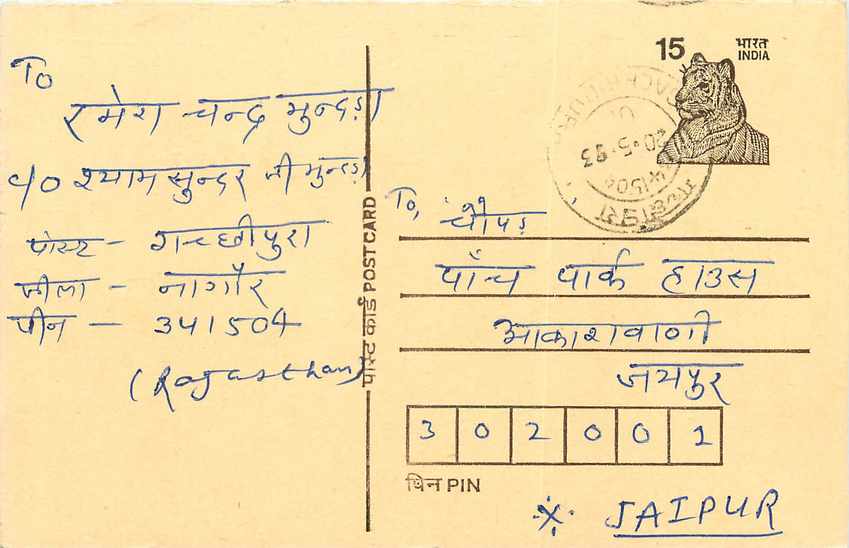 To
रमेश चन्द्र मुन्दड़ा
c/o श्याम सुन्दर जी मुन्दड़ा
पोस्ट - गच्छीपुरा
जीला - नागौर
पीन - 341504
(Rajasthan)
पोस्ट कार्ड POSTCARD
15 भारत
INDIA
20.5.93
To, चौपड़
पाँच पार्क हाउस
आकाशवाणी
जयपुर
3 0 2 0 0 1
पिन PIN
JAIPUR